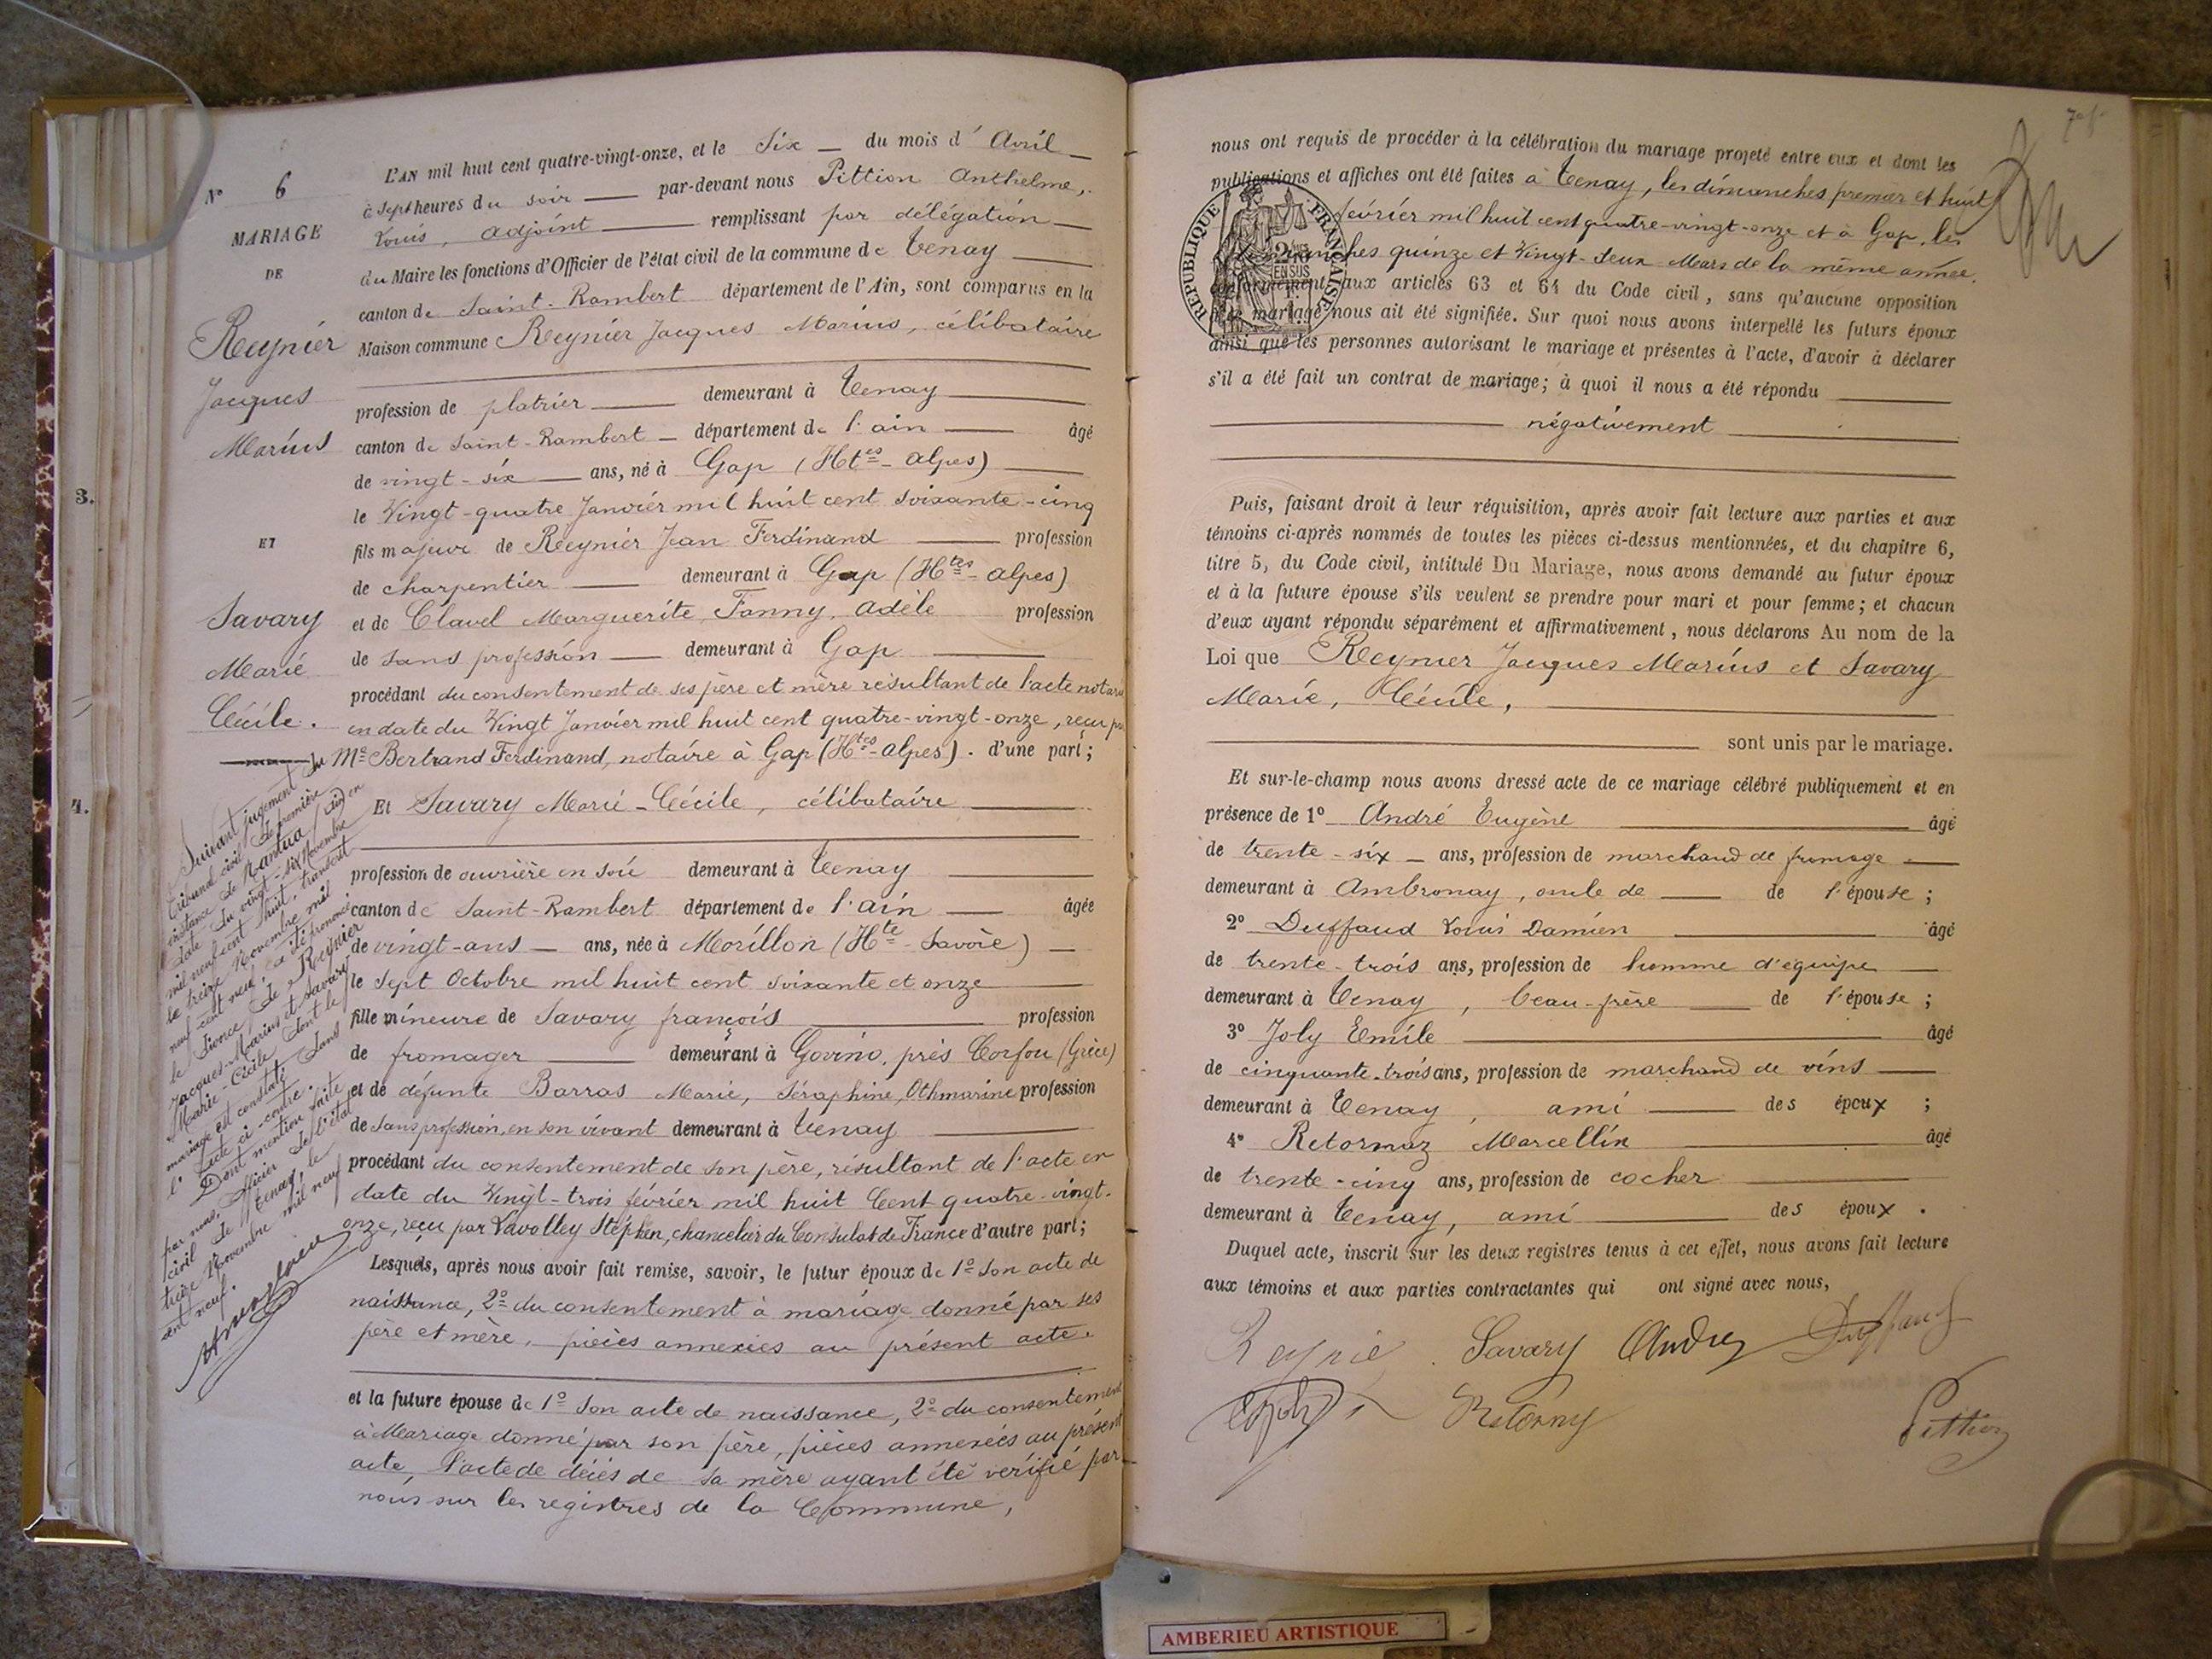 L'AN mil huit cent quatre-vingt-onze, et le Six du mois d'Avril
à Sept heures du soir par-devant nous Pittion Anthelme,
Louis, adjoint remplissant par délégation
du Maire les fonctions d'Officier de l'état civil de la commune de Tenay
canton de Saint-Rambert département de l'Ain, sont comparus en la
Maison commune Reynier Jacques Marius, célibataire
profession de platrier demeurant à Tenay
canton de Saint-Rambert département de l'ain âgé
de vingt-six ans, né à Gap (Htes-alpes)
le Vingt-quatre Janvier mil huit cent soixante-cinq
fils majeur de Reynier Jean Ferdinand profession
de charpentier demeurant à Gap (Htes-alpes)
et de Clavel Marguerite, Fanny, adèle profession
de sans profession demeurant à Gap
procédant du consentement de ses père et mère résultant de l'acte notarié
en date du Vingt Janvier mil huit cent quatre-vingt-onze, reçu par
Me Bertrand Ferdinand, notaire à Gap (Htes-alpes). d'une part;
Et Savary Marie-Cécile, célibataire
profession de ouvrière en soie demeurant à Tenay
canton de Saint-Rambert département de l'ain âgée
de vingt-ans ans, née à Morillon (Hte-Savoie)
le sept Octobre mil huit cent soixante et onze
fille mineure de Savary françois profession
de fromager demeurant à Govino, près Corfou (Grèce)
et de défunte Barras Marie, Séraphine, Othmarine profession
de Sans profession, en son vivant demeurant à Tenay
procédant du consentement de son père, résultant de l'acte en
date du Vingt-trois février mil huit Cent quatre-vingt-
onze, reçu par Lavolley Stéphen, chancelier du Consulat de France d'autre part;
Lesquels, après nous avoir fait remise, savoir, le futur époux de 1º Son acte de
naissance, 2º du consentement à mariage donné par ses
père et mère, pièces annexées au présent acte.
et la future épouse de 1º Son acte de naissance, 2º du consentement
à Mariage donné par son père, pièces annexées au présent
acte, l'acte de décès de sa mère ayant été vérifié par
nous sur les registres de la Commune,
Nº 6
MARIAGE
DE
Reynier
Jacques
Marius
3.
ET
Savary
Marie
Cécile.
4.
Suivant jugement du
Tribunal civil de première
instance de Nantua (ain) en
date du vingt-six Novembre
mil neuf cent huit, transcrit
le treize Novembre mil
neuf cent neuf, a été prononcé
le divorce de Reynier
Jacques-Marius et Savary
Marie-Cécile dont le
mariage est constaté dans
l'acte ci-contre.
Dont mention faite
par nous, officier de l'état
civil de Tenay, le
treize Novembre mil neuf
cent neuf.
nous ont requis de procéder à la célébration du mariage projeté entre eux et dont les
publications et affiches ont été faites à Tenay, les dimanches premier et huit
février mil huit cent quatre-vingt-onze et à Gap, les
dimanches quinze et Vingt-deux Mars de la même année.
conformément aux articles 63 et 64 du Code civil, sans qu'aucune opposition
à ce mariage nous ait été signifiée. Sur quoi nous avons interpellé les futurs époux
ainsi que les personnes autorisant le mariage et présentes à l'acte, d'avoir à déclarer
s'il a été fait un contrat de mariage; à quoi il nous a été répondu
négativement
RÉPUBLIQUE FRANÇAISE
2/10
EN SUS
Puis, faisant droit à leur réquisition, après avoir fait lecture aux parties et aux
témoins ci-après nommés de toutes les pièces ci-dessus mentionnées, et du chapitre 6,
titre 5, du Code civil, intitulé Du Mariage, nous avons demandé au futur époux
et à la future épouse s'ils veulent se prendre pour mari et pour femme; et chacun
d'eux ayant répondu séparément et affirmativement, nous déclarons Au nom de la
Loi que Reynier Jacques Marius et Savary
Marie, Cécile,
sont unis par le mariage.
Et sur-le-champ nous avons dressé acte de ce mariage célébré publiquement et en
présence de 1º André Eugène âgé
de trente-six ans, profession de marchand de fromage
demeurant à Ambronay, oncle de de l'épouse;
2º Duffaud Louis Damien âgé
de trente-trois ans, profession de homme d'équipe
demeurant à Tenay, beau-frère de l'épouse;
3º Joly Emile âgé
de cinquante-trois ans, profession de marchand de vins
demeurant à Tenay, ami des époux;
4º Retornaz Marcellin âgé
de trente-cinq ans, profession de cocher
demeurant à Tenay, ami des époux.
Duquel acte, inscrit sur les deux registres tenus à cet effet, nous avons fait lecture
aux témoins et aux parties contractantes qui ont signé avec nous,
Reynié Savary André Duffaud
Pittion
AMBERIEU ARTISTIQUE